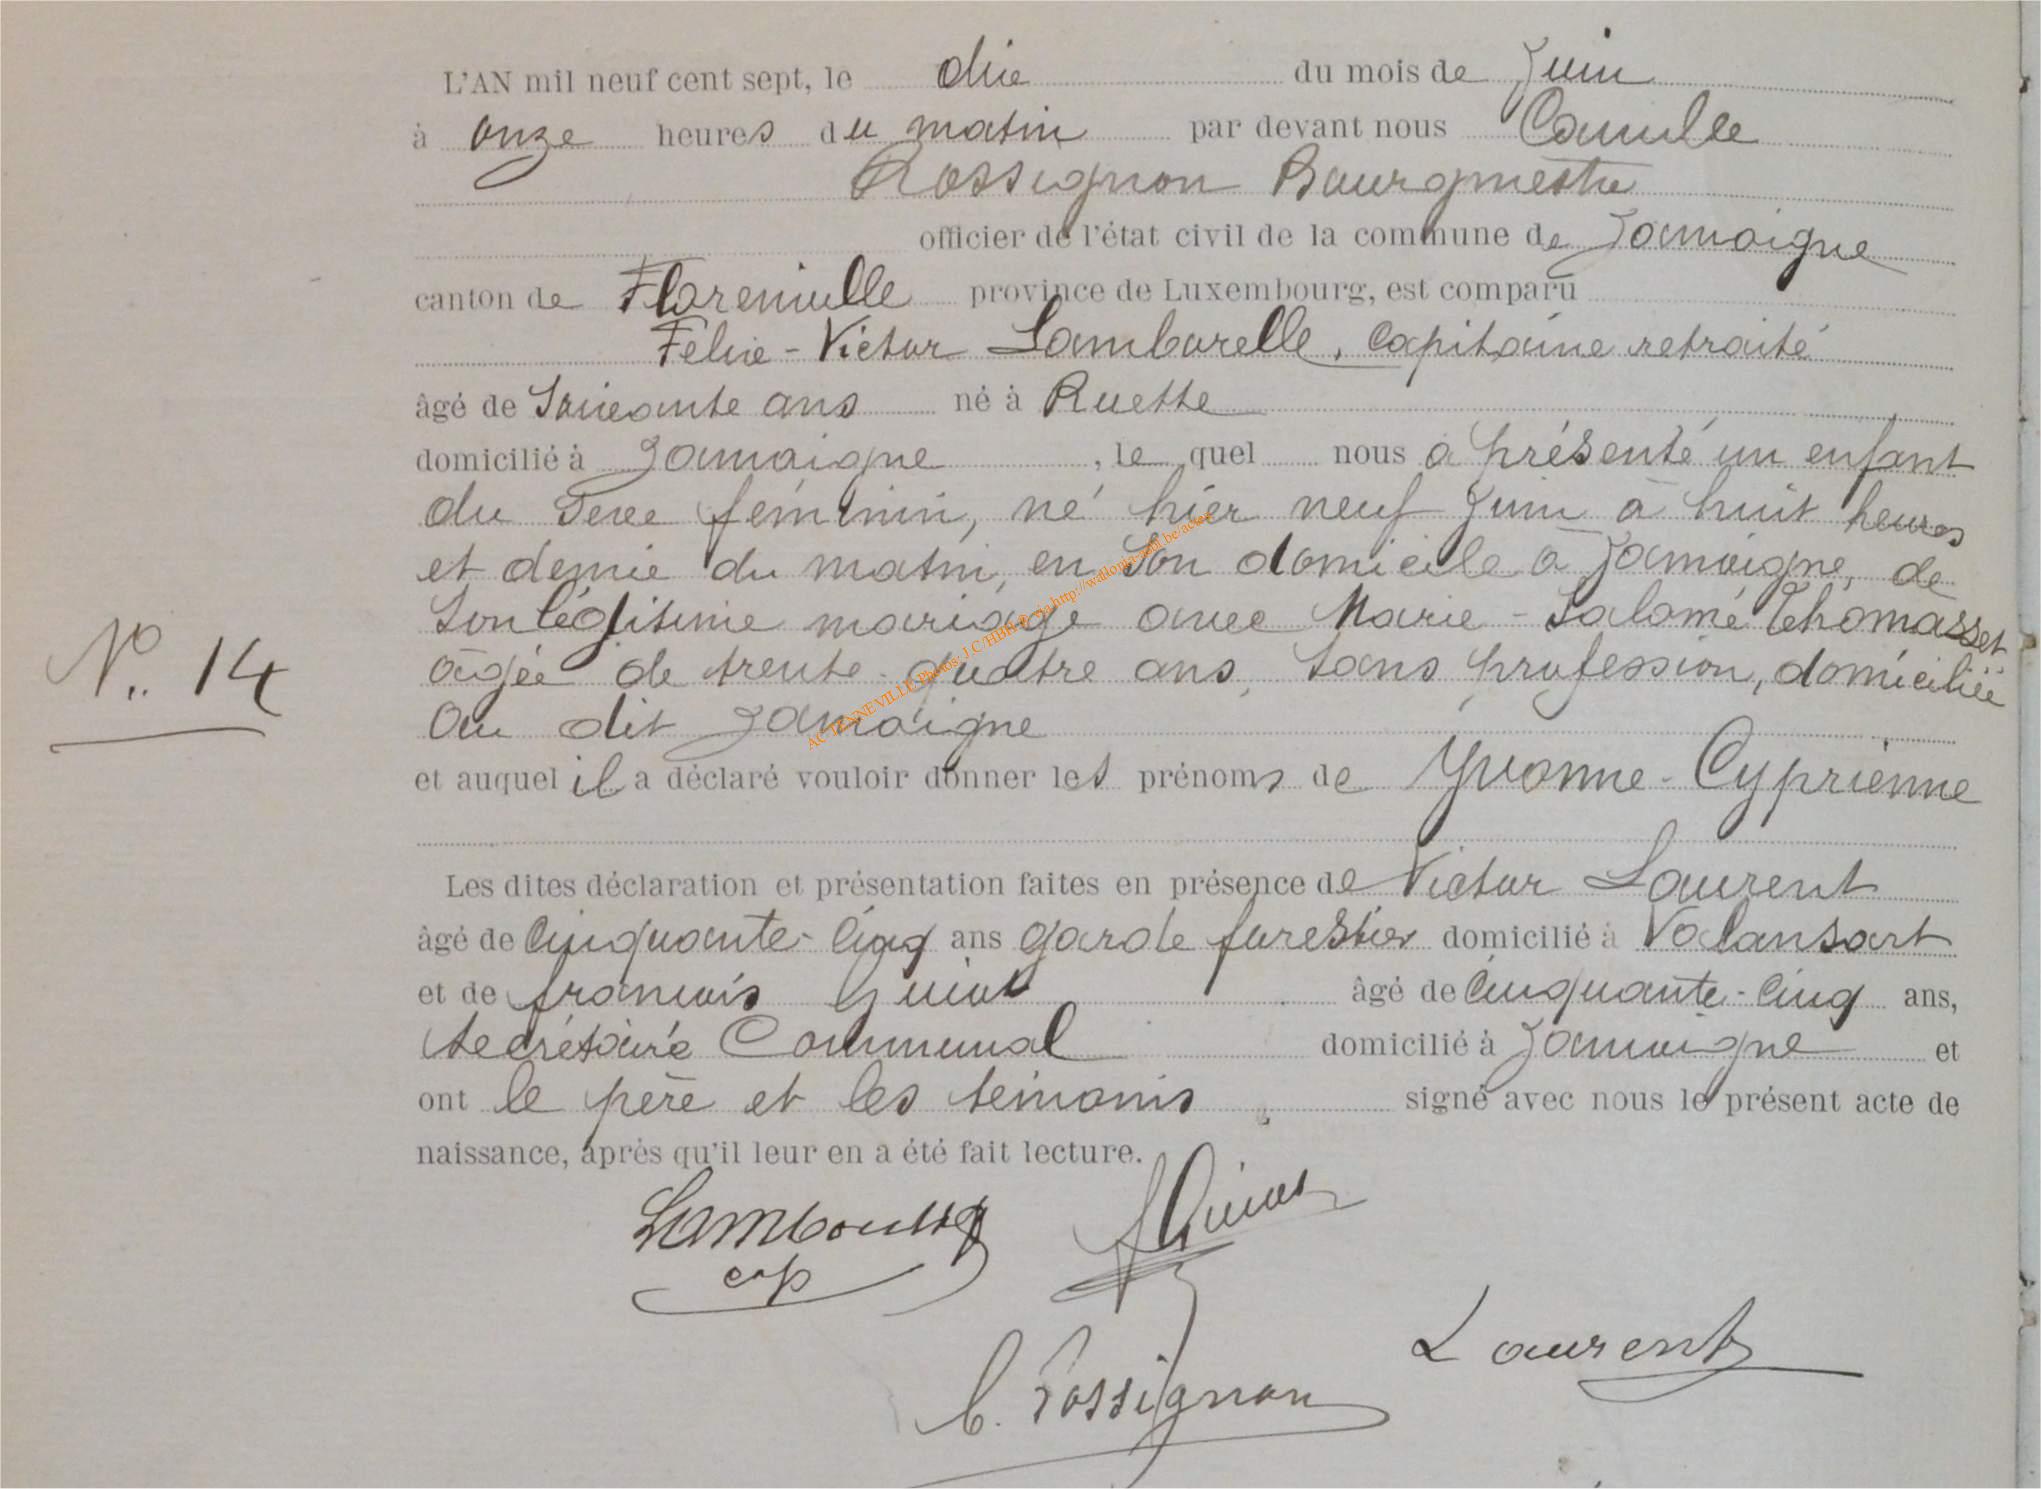 L'AN mil neuf cent sept, le dix du mois de Juin
à onze heures du matin par devant nous Camille
Rossignon Bourgmestre
officier de l'état civil de la commune de Jamoigne
canton de Florenville province de Luxembourg, est comparu
Félix-Victor Lamborelle, capitaine retraité
âgé de Soixante ans né à Ruette
domicilié à Jamoigne, le quel nous a présenté un enfant
du sexe féminin, né hier neuf Juin à huit heures
et demie du matin, en son domicile à Jamoigne, de
son légitime mariage avec Marie-Salomé Thomasset
âgée de trente-quatre ans, sans profession, domiciliée
au dit Jamoigne
et auquel il a déclaré vouloir donner les prénoms de Yvonne-Cyprienne
Les dites déclaration et présentation faites en présence de Victor Laurent
N° 14
âgé de cinquante-cinq ans garde forestier domicilié à Valansart
et de françois Guiot âgé de cinquante-cinq ans,
secrétaire Communal domicilié à Jamoigne et
ont le père et les témoins signé avec nous le présent acte de
naissance, après qu'il leur en a été fait lecture.
Lamborelle
cap
f Guiot
Laurent
C. Rossignon
AC TENNEVILLE Photos: J.C/HBH-R via http://wallonia-asbl.be/actes